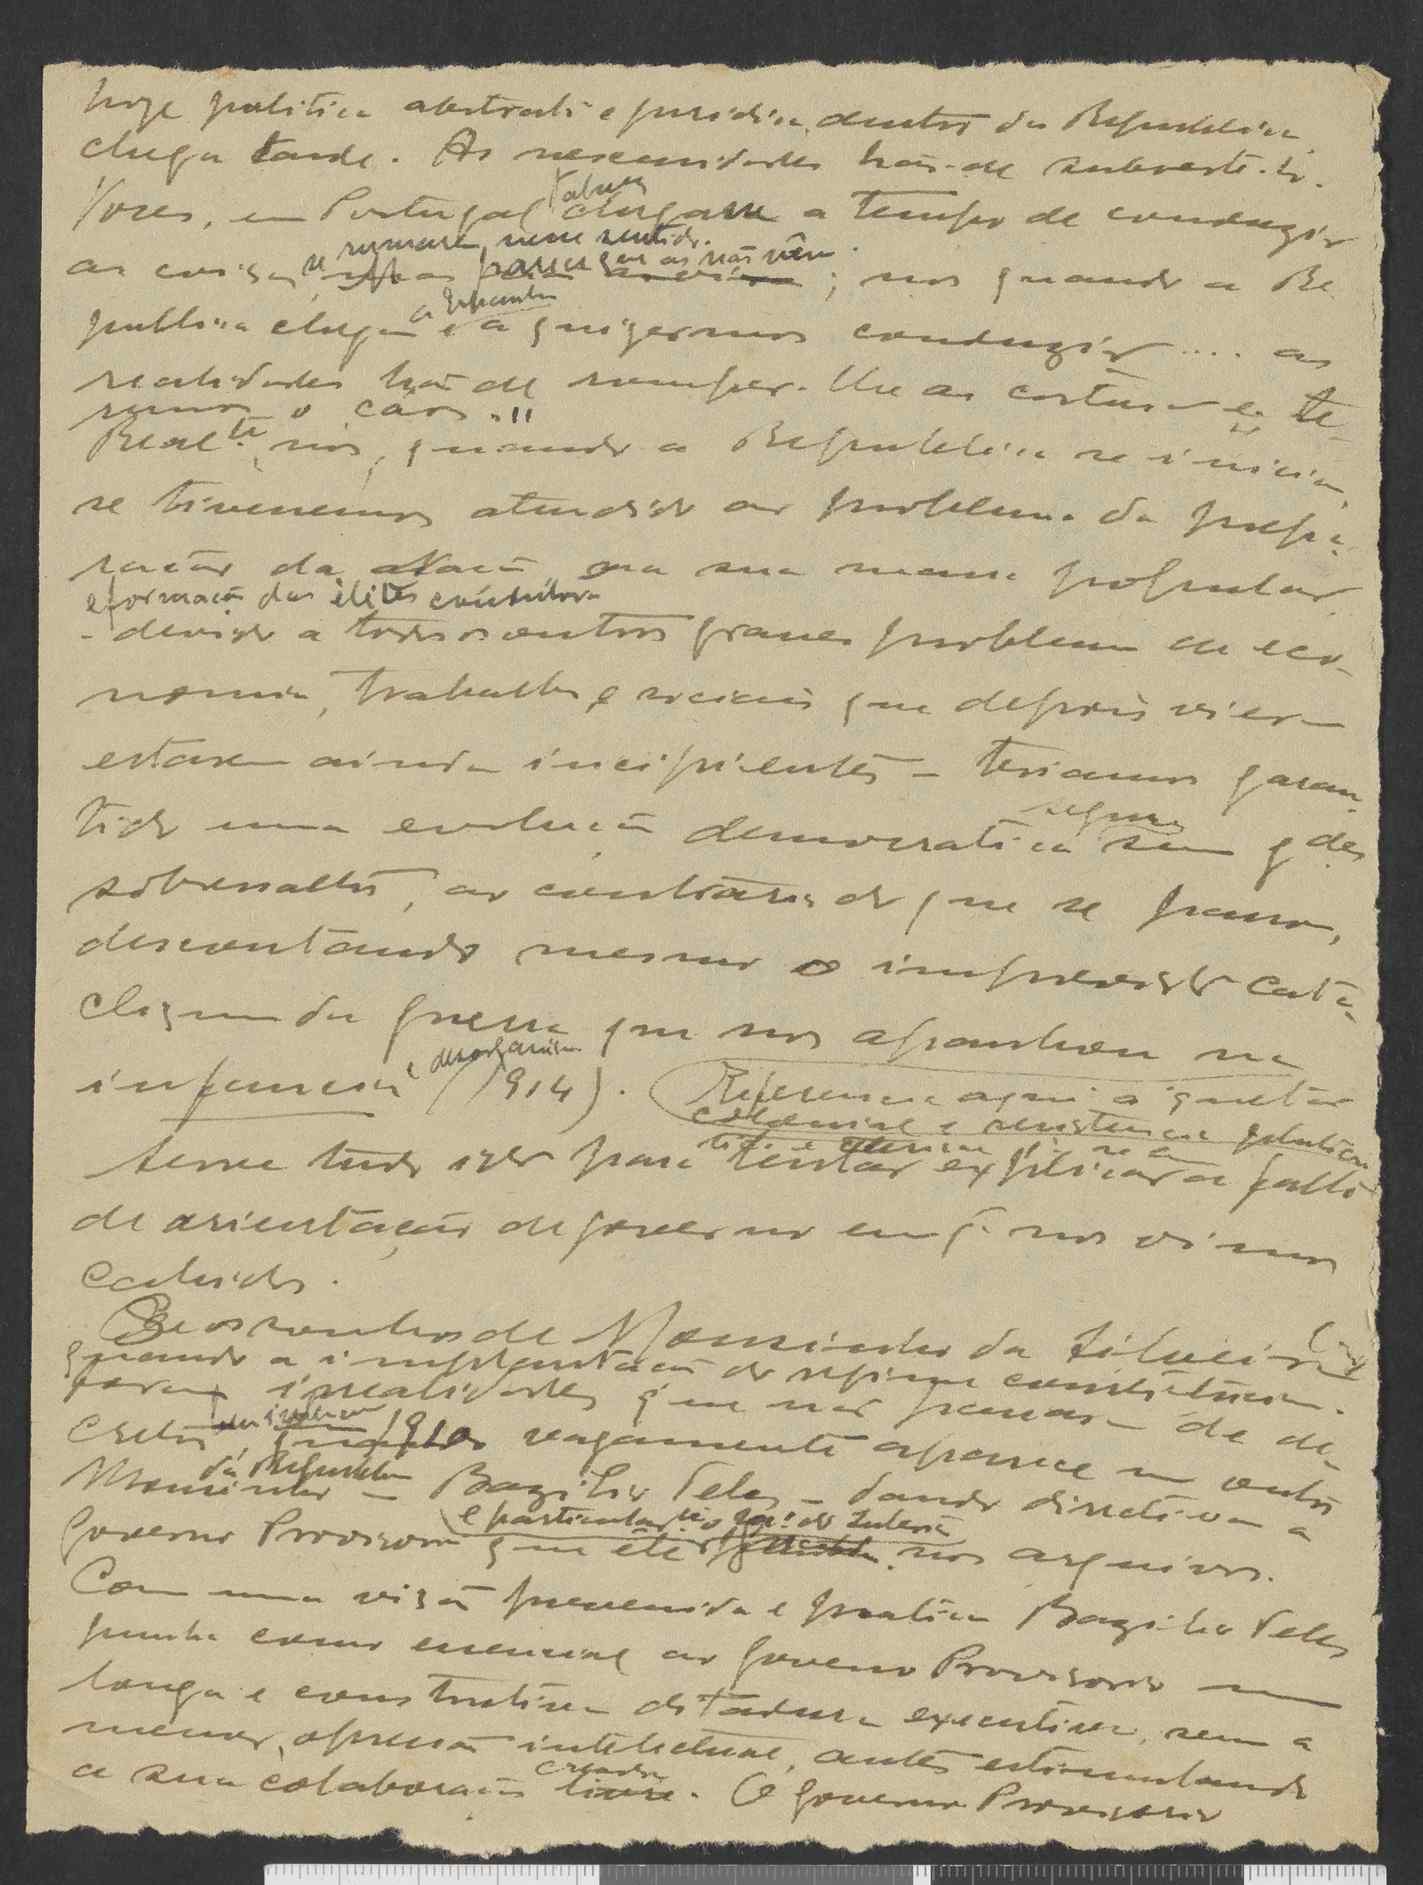 hoje politica abstrata e juridica, dentro da Republica
chega tarde. As necessidades hão-de subverte-la.
Voces, em Portugal talvez chegassem a tempo de conduzir
as coisas se rumarem nesse sentido.
parece que as não vêm ; nós quando a Re
publica chegar a Espanha e a quizermos conduzir .... as
realidades hão de romper-lhe as costuras e te-
remos o cáos."
Realte, nós, quando a Republica se iniciou,
se tivessemos atendido ao problema da prepa
ração da Nação na sua massa popular
e formação das élites
- devido a todos os outros graves problemas de eco-
nomia, trabalho, e sociais que depois vieram
estarem ainda incipientes - teriamos garan-
tido uma evolução democratica segura sem gdes
sobresaltos, ao contrário do que se passou,
descontando mesmo o imprevisto cata-
clismo da guerra que nos apanhou na
infancia e desorganisou (1914). Referencia aqui á questão
colonial e resistencia
Serve tudo isto para tentar explicar a falta
de orientação de governo em q. nos vimos
cahidos.
Se os sonhos de Mousinho da Silveira
quando a implantação do regimen constitucional
foram irrealidades que não passaram de de-
cretos, 1910 vagamente aparece um outro
Mousinho da Republica - Bazilio Teles - dando directivas a
Governo Provisorio e particularte o que êle nos arquivos.
Com uma visão prevenida e pratica Bazilio Teles
punha como essencial ao Governo Provisorio uma
longa e construtiva ditadura executiva, sem a
menor opressão intelectual, antes estimulando
a sua colaboração creadora livre. O Governo Provisorio